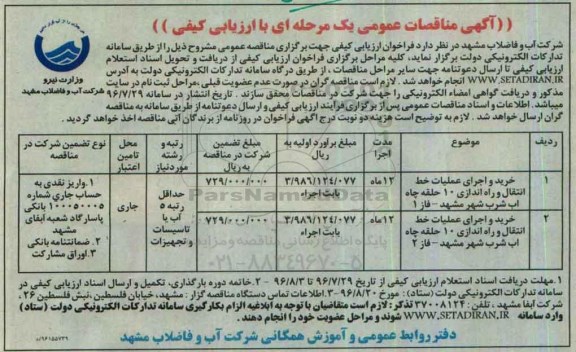 ((آگهی مناقصات عمومی یک مرحله ای با ارزیابی کیفی))
وزارت نیرو
شرکت آب و فاضلاب مشهد
شرکت آب و فاضلاب مشهد در نظر دارد فراخوان ارزیابی کیفی جهت برگزاری مناقصه عمومی مشروح ذیل را از طریق سامانه
تدارکات الکترونیکی دولت برگزار نماید، کلیه مراحل برگزاری فراخوان ارزیابی کیفی از دریافت و تحویل اسناد استعلام
ارزیابی کیفی تا ارسال دعوتنامه جهت سایر مراحل مناقصات، از طریق درگاه سامانه تدارکات الکترونیکی دولت به آدرس
WWW.SETADIRAN.IR انجام خواهد شد. لازم است مناقصه گران در صورت عدم عضویت قبلی، مراحل ثبت نام در سایت
مذکور و دریافت گواهی امضاء الکترونیکی را جهت شرکت در مناقصات محقق سازند. تاریخ انتشار در سامانه ۹۶/۷/۲۹
میباشد. اطلاعات و اسناد مناقصات عمومی پس از برگزاری فرآیند ارزیابی کیفی و ارسال دعوتنامه از طریق سامانه به مناقصه
گران ارسال خواهد شد. لازم به توضیح است هزینه دو نوبت درج آگهی فراخوان در روزنامه از برندگان آتی مناقصه اخذ خواهد گردید.
ردیف | موضوع | مدت اجرا | مبلغ برآورد اولیه به ریال | مبلغ تضمین شرکت در مناقصه به ریال | رتبه و رشته موردنیاز | محل تامین اعتبار | نوع تضمین شرکت در مناقصه
۱ | خرید و اجرای عملیات خط انتقال و راه اندازی ۱۰ حلقه چاه اب شرب شهر مشهد - فاز ۱ | ۱۲ماه | ۳/۹۸۶/۱۲۴/۰۷۷ بابت اجراء | ۷۲۹/۰۰۰/۰۰۰ | حداقل رتبه ۵ آب یا تاسیسات و تجهیزات | جاری | ۱.واریز نقدی به حساب جاری شماره ۱۰۰۰۵۰۰۰۵ بانکی پاسارگاد شعبه آبفای مشهد
۲ | خرید و اجرای عملیات خط انتقال و راه اندازی ۱۰ حلقه چاه اب شرب شهر مشهد - فاز ۲ | ۱۲ماه | ۳/۹۸۶/۱۲۴/۰۷۷ بابت اجراء | ۷۲۹/۰۰۰/۰۰۰
۲. ضمانتنامه بانکی
۳.اوراق مشارکت
ParsNamadData
۰۲۱-۸۸۳۴۹۶۷۰-۵
۱.مهلت دریافت اسناد استعلام ارزیابی کیفی از تاریخ ۹۶/۷/۲۹ تا ۹۶/۸/۳ ۲.خاتمه دوره بارگذاری، تکمیل و ارسال اسناد ارزیابی کیفی در
سامانه تدارکات الکترونیکی دولت (ستاد): مورخ ۹۶/۸/۲۰ ۳.اطلاعات تماس دستگاه مناقصه گزار: مشهد، خیابان فلسطین، نبش فلسطین ۲۶،
شرکت آبفا مشهد، تلفن: ۳۷۰۰۸۱۲۴ تذکر: لازم است متقاضیان با توجه به ابلاغیه الزام بکارگیری سامانه تدارکات الکترونیکی دولت (ستاد)
وارد سامانه WWW.SETADIRAN.IR شوند و مراحل عضویت خود را انجام دهند.
دفتر روابط عمومی و آموزش همگانی شرکت آب و فاضلاب مشهد